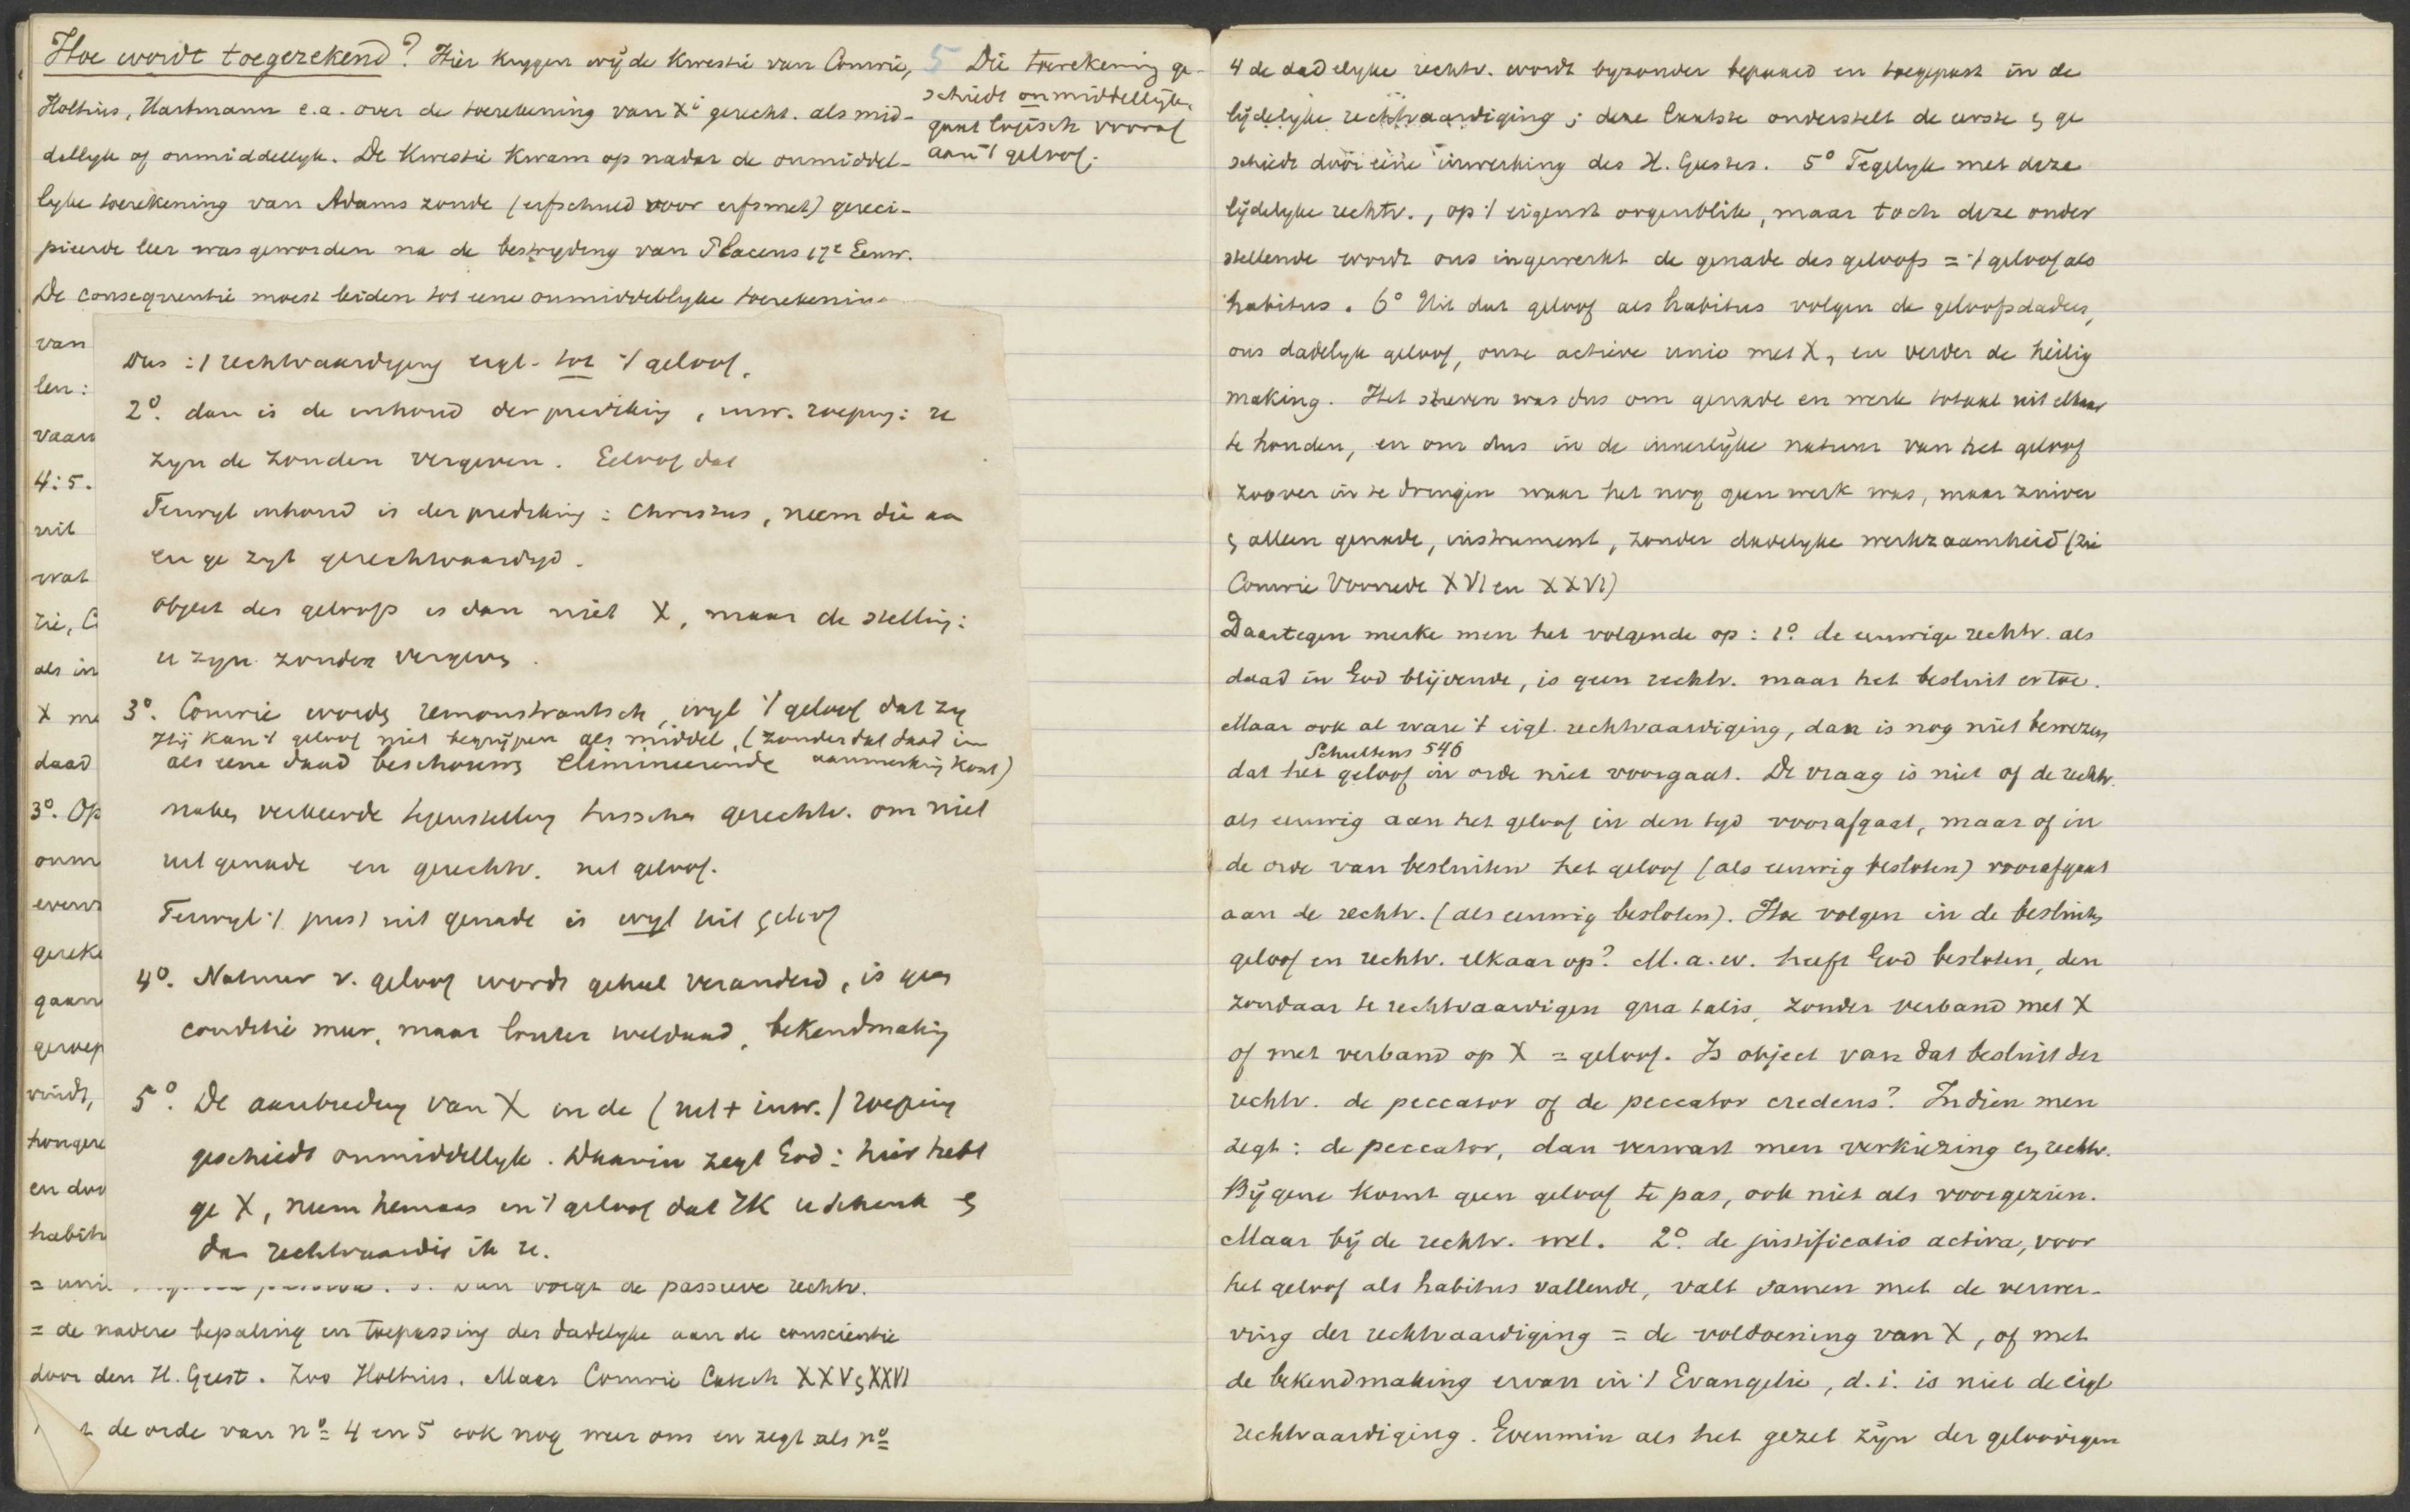 Hoe wordt toegerekend? Hier krygen wij de kwestie van Comrie,
Holtius, Hartmann e.a. over de toerekening van Xi gerecht. als mid-
dellyk of onmiddellyk. De kwestie kwam op nadat de onmiddel-
lyke toerekening van Adams zonde (erfschuld voor erfsmet) gereci-
pieerde leer was geworden na de bestryding van Placeus 17e Eeuw.
De consequentie moest leiden tot eene onmiddellyke toerekening
5 Die toerekening ge-
schiedt onmiddellijk,
gaat logisch vooraf
aan 't geloof.
van
len:
vaar
4:5.
uit
wat
tie, C
als in
X me
daad
3o. Op
onm
evenz
gereke
gaan
geroep
vindt,
hongere
en doo
habit
Dus: 't rechtvaardiging eigl. tot 't geloof.
2o. dan is de inhoud der prediking, inw. roeping: u
zyn de zonden vergeven. Geloof dat
Terwyl inhoud is der prediking: Christus, neem die aa
en ge zyt gerechtvaardigd.
Object des geloofs is dan niet X, maar de stelling:
u zyn zonden vergeven.
3o. Comrie wordt remonstrantsch, wyl 't geloof dat zy
Hij kan 't geloof niet begrijpen als middel, (zonder dat daad in
aanmerking komt)
als eene daad beschouwen elimineerende
maken verkeerde tegenstelling tusschen gerechtv. om niet
uit genade en gerechtv. uit geloof.
Terwyl 't juist uit genade is wyl uit geloof
4o. Natuur v. geloof wordt geheel veranderd, is geen
conditie meer, maar louter weldaad, bekendmaking
5o. De aanbieding van X in de (uit + inw.) roeping
geschiedt onmiddellyk. Daarin zegt God: hier hebt
ge X, neem hem aan in 't geloof dat Ik u schenk en
dan rechtvaardig ik u.
= uni Dan volgt de passieve rechtv.
= de nadere bepaling en toepassing der dadelyke aan de conscientie
door den H. Geest. Zoo Holtius. Maar Comrie Catech XXV en XXVI
de orde van no 4 en 5 ook nog weer om en zegt als no
4 de dadelyke rechtv. wordt byzonder bepaald en toegepast in de
lijdelyke rechtvaardiging; deze laatste onderstelt de eerste en ge
schiedt door eene inwerking des H. Geestes. 5o Tegelyk met deze
lijdelyke rechtv., op 't eigenst oogenblik, maar toch deze onder
stellende wordt ons ingewerkt de genade des geloofs = 't geloof als
habitus. 6o Uit dat geloof als habitus volgen de geloofsdaden,
ons dadelyk geloof, onze actieve unio met X, en verder de heilig
making. Het streven was dus om genade en werk totaal uit elkaar
te houden, en om dus in de innerlijke natuur van het geloof
zoover in te dringen waar het nog geen werk was, maar zuiver
en alleen genade, instrument, zonder dadelyke werkzaamheid (zie
Comrie Voorrede XVI en XXVI)
Daartegen merke men het volgende op: 1o. de eeuwige rechtv. als
daad in God blijvende, is geen rechtv. maar het besluit ertoe.
Maar ook al ware 't eigl. rechtvaardiging, dan is nog niet bewezen
Schultens 546
dat het geloof in orde niet voorgaat. De vraag is niet of de rechtv.
als eeuwig aan het geloof in den tyd voorafgaat, maar of in
de orde van besluiten het geloof (als eeuwig besloten) voorafgaat
aan de rechtv. (als eeuwig besloten). Hoe volgen in de besluiten
geloof en rechtv. elkaar op? M.a.w. heeft God besloten, den
zondaar te rechtvaardigen qua talis, zonder verband met X
of met verband op X = geloof. Is object van dat besluit der
rechtv. de peccator of de peccator credens? Indien men
zegt: de peccator, dan verwart men verkiezing en rechtv.
Bij gene komt geen geloof te pas, ook niet als voorgezien.
Maar bij de rechtv. wel. 2o. de justificatio activa, voor
het geloof als habitus vallende, valt samen met de verwer-
ving der rechtvaardiging = de voldoening van X, of met
de bekendmaking ervan in 't Evangelie, d.i. is niet de eigl
rechtvaardiging. Evenmin als het gezet zijn der geloovigen